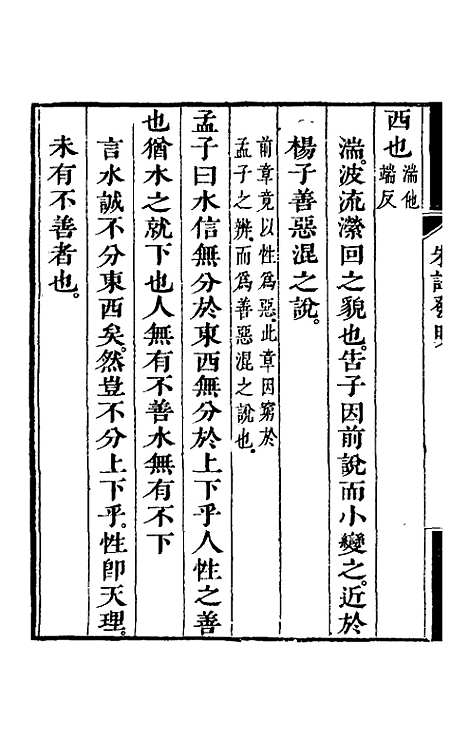 朱註發明
西也湍他
端反
湍。波流瀠回之貌也。告子因前說而小變之。近於
楊子善惡混之說。
前章竟以性爲惡。此章因窮於
孟子之辨。而爲善惡混之說也。
孟子曰水信無分於東西無分於上下乎人性之善
也猶水之就下也人無有不善水無有不下
言水誠不分東西矣。然豈不分上下乎。性卽天理。
未有不善者也。